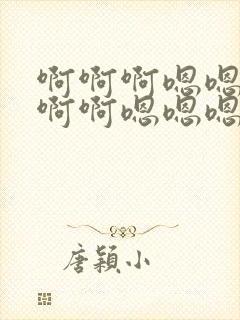 啊啊啊嗯嗯
啊啊嗯嗯嗯
唐穎小